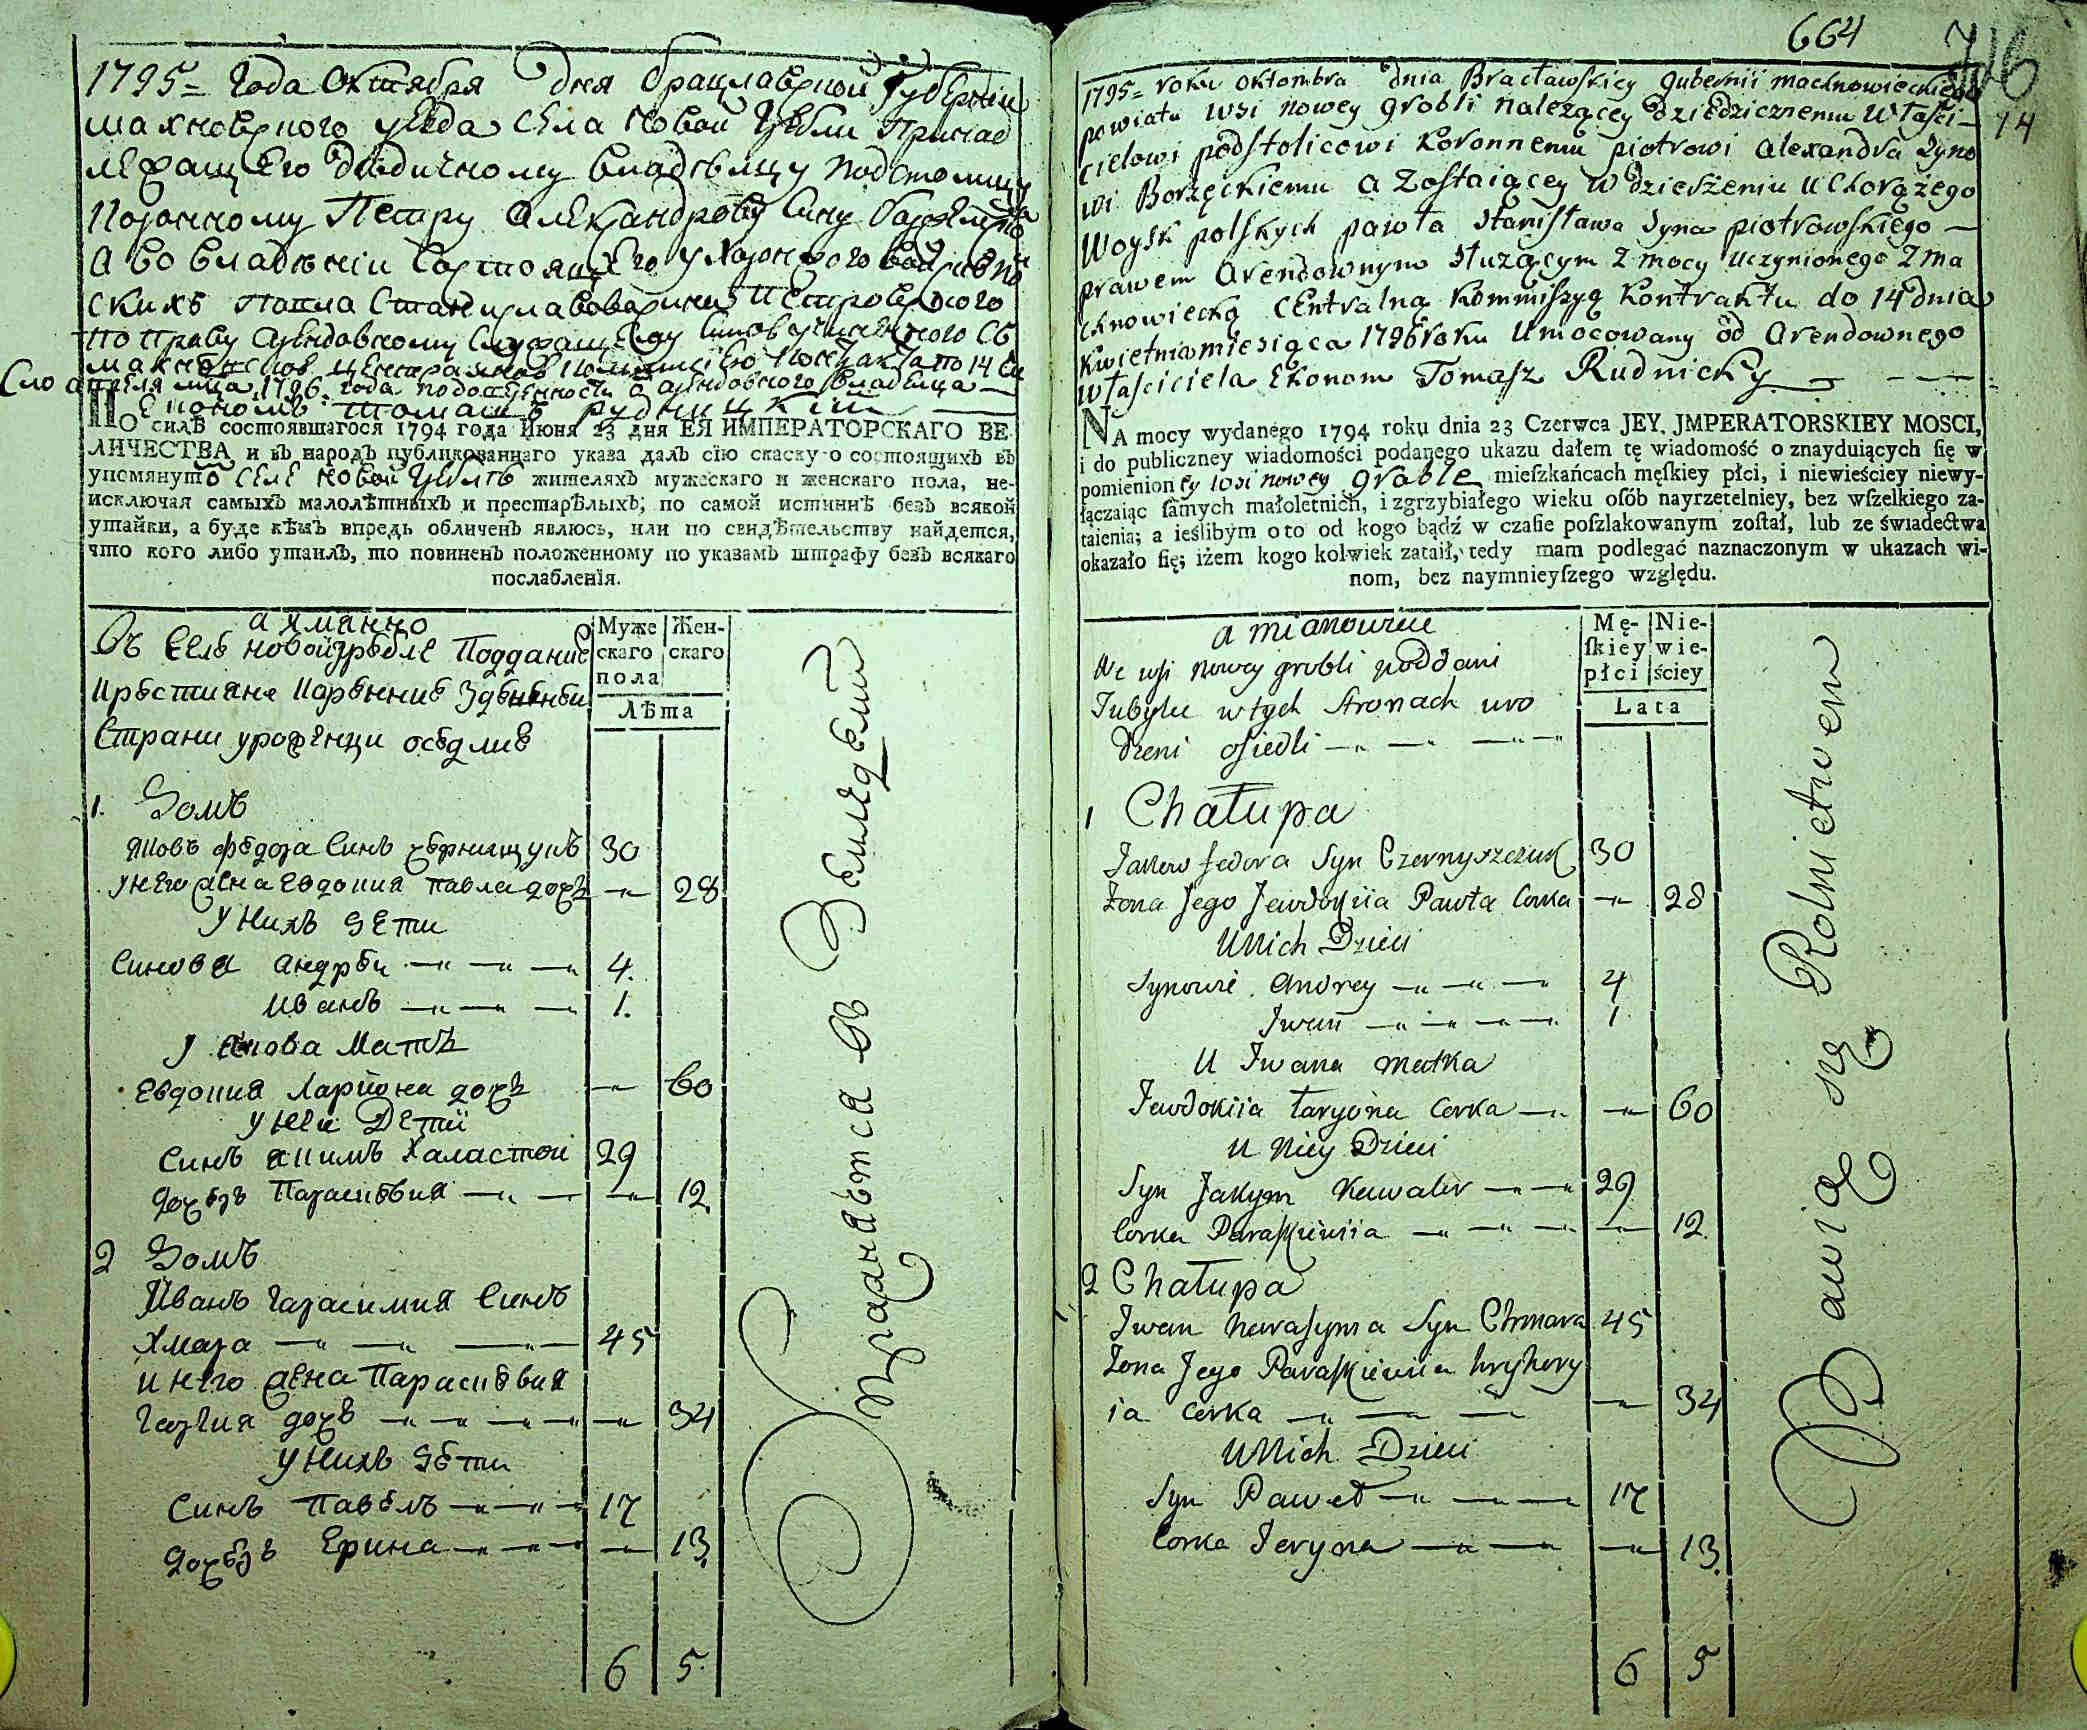 1795 = Года Октября Дня брацлавской Губернии
махновского уезда Села Новой Гребли Принад
лежащего дедичному владельцу подстолицу
Коронному Петру Александрову Сину
А во владении Состоящего у Хоронжого войск поль
скихъ Павла Станиславова Сина Петровского
по праву Арендовскому
по 14
апреля мца 1796 года арендовного владельца
Економъ Томашъ Рудницкій
ПО силѣ состоявшагося 1794 года Июня 23 дня ЕЯ ИМПЕРАТОРСКАГО ВЕ-
ЛИЧЕСТВА и въ народъ публикованнаго указа далъ сїю скаску о состоящихъ въ
упомянуто Селе Новой Гребле жителяхъ мужескаго и женскаго пола, не-
исключая самыхъ малолѣтныхъ и престарѣлыхъ; по самой истиннѣ безъ всякой
утайки, а буде кѣмъ впредь обличенъ явлюсь, или по свидѣтельству найдется,
что кого либо утаилъ, то повиненъ положенному по указамъ штрафу безъ всякаго
послабленїя.
а имянно
Въ Селе новой гребле Поддание
Крестияне
Страни уроженци оседлие
Муже скаго пола
Жен- скаго
Лѣта
1. Домъ
Яковъ федора Синъ Чернищукъ 30
у него жена Евдокия Павла дочь — 28
У Нихъ Дети
Синове Андрей — — — 4.
Иванъ — — — 1.
У Якова Мать
Евдокия Ларйона дочь — 60
у Неи Дети
Синъ Якимъ Халастой 29
Дочерь Параскевия — — — 12
2 Домъ
Иванъ Гарасимия Синъ
Хмара — — — 45
и него жена Параскевия
дочь — — — — — 34
у Нихъ Дети
Синъ Павелъ — — — 17
Дочерь Ерина — — — — 13.
6 5.
Упражняются въ Земледелии
664
716
14
1795 = roku oktombra dnia Bracławskiey gubernii machnowieckiego
powiatu wsi nowey grobli należącey dziedzicznemu Właści-
cielowi podstolicowi koronnemu piotrowi Alexandra Syno
wi Borzęckiemu a Zostaiącey w dzierżeniu u Chorążego
Woysk polskych pawła Stanisława Syna piotrowskiego —
prawem Arendownym służącym z mocy uczynionego z Ma
chnowiecką Centralną kommissyą kontraktu do 14 dnia
kwietnia miesiąca 1796 roku Umocowany od Arendownego
właściciela Ekonom Tomasz Rudnicky — — —
NA mocy wydanego 1794 roku dnia 23 Czerwca JEY. JMPERATORSKIEY MOSCI,
i do publiczney wiadomości podanego ukazu dałem tę wiadomość o znayduiących ſię w
pomienioney wsi nowey Groble mieſzkańcach męſkiey płci, i niewieściey niewy-
łączaiąc ſamych małoletnich, i zgrzybiałego wieku oſób nayrzetelniey, bez wſzelkiego za-
taienia; a ieślibym o to od kogo bądź w czaſie poſzlakowanym zoſtał, lub ze świadectwa
okazało ſię; iżem kogo kolwiek zataił, tedy mam podlegać naznaczonym w ukazach wi-
nom, bez naymnieyſzego względu.
a mianowicie
We wsi nowey grobli poddani
Tubylu w tych Stronach uro
dzeni osiedli — — — —
Mę- ſkiey płci
Nie- wie- ściey
Lata
1 Chałupa
Jakow fedora Syn Czernyszczuk 30
Żona Jego Jewdokiia Pawła Corka — 28
U Nich Dzieci
Synowie Andrey — — — 4
Iwan — — — — 1
U Iwana matka
Jewdokiia Łaryona Corka — — 60
u Niey Dzieci
Syn Jakym Kawaler — — 29
Corka Paraskiewiia — — — — 12
2 Chałupa
Iwan Harasyma Syn Chmara 45
Żona Jego Paraskiewiia hryhory
ia corka — — — — 34
U Nich Dzieci
Syn Paweł — — — 17
Corka Jeryna — — — 13.
6 5
Bawią się Rolnictwem